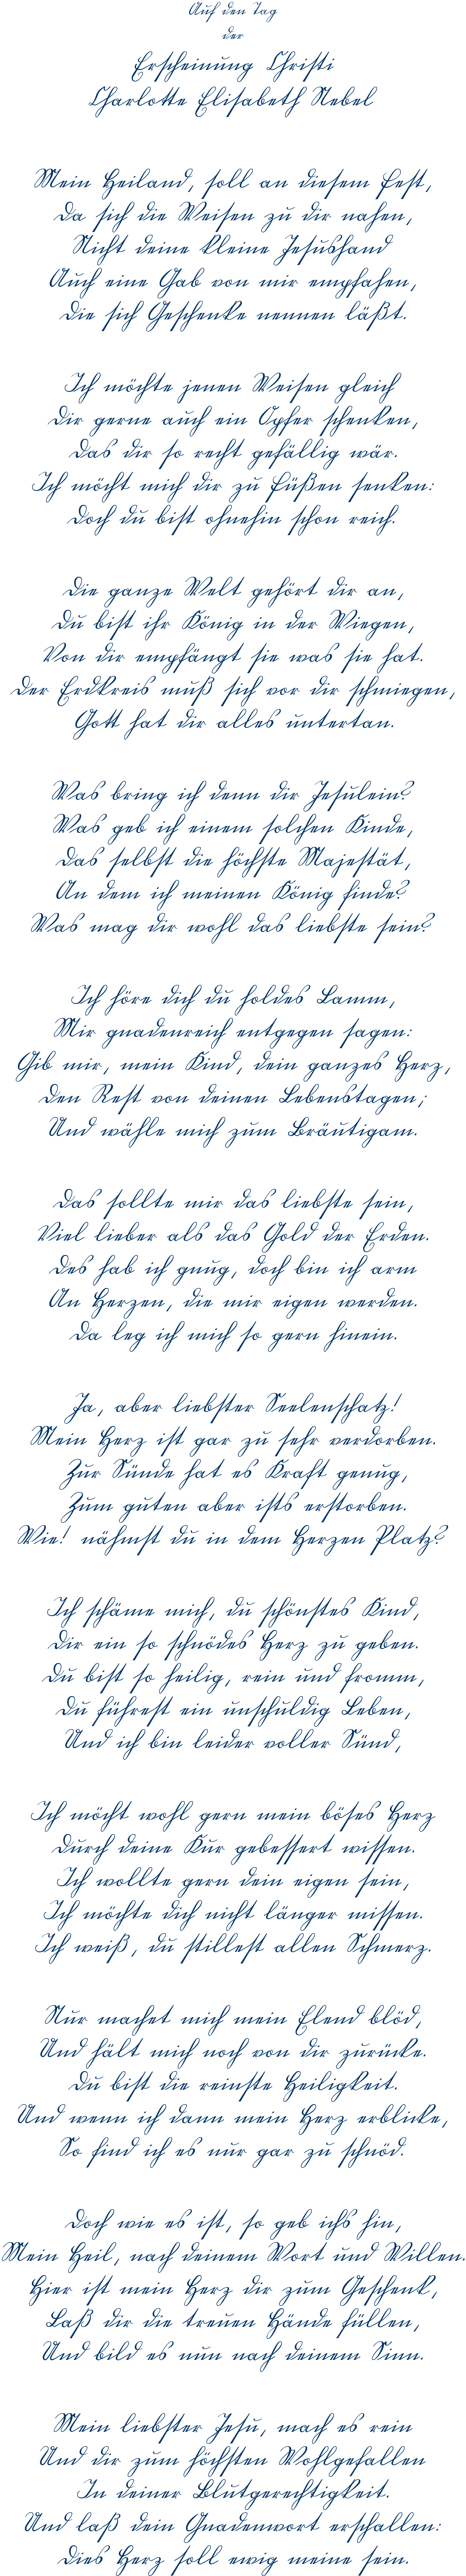 Auf den Tag
der
Erscheinung Christi
Charlotte Elisabeth Nebel
Mein Heiland, soll an diesem Fest,
Da sich die Weisen zu dir nahen,
Nicht deine kleine Jesushand
Auch eine Gab von mir empfahen,
Die sich Geschenke nennen läßt.
Ich möchte jenen Weisen gleich
Dir gerne auch ein Opfer schenken,
Das dir so recht gefällig wär.
Ich möcht mich dir zu Füßen senken:
Doch du bist ohnehin schon reich.
Die ganze Welt gehört dir an,
Du bist ihr König in der Wiegen,
Von dir empfängt sie was sie hat.
Der Erdkreis muß sich vor dir schmiegen,
Gott hat dir alles untertan.
Was bring ich denn dir Jesulein?
Was geb ich einem solchen Kinde,
Das selbst die höchste Majestät,
An dem ich meinen König finde?
Was mag dir wohl das liebste sein?
Ich höre dich du holdes Lamm,
Mir gnadenreich entgegen sagen:
Gib mir, mein Kind, dein ganzes Herz,
Den Rest von deinen Lebenstagen;
Und wähle mich zum Bräutigam.
Das sollte mir das liebste sein,
Viel lieber als das Gold der Erden.
Des hab ich gnug, doch bin ich arm
An Herzen, die mir eigen werden.
Da leg ich mich so gern hinein.
Ja, aber liebster Seelenschatz!
Mein Herz ist gar zu sehr verdorben.
Zur Sünde hat es Kraft genug,
Zum guten aber ists erstorben.
Wie! nähmst du in dem Herzen Platz?
Ich schäme mich, du schönstes Kind,
Dir ein so schnödes Herz zu geben.
Du bist so heilig, rein und fromm,
Du führest ein unschuldig Leben,
Und ich bin leider voller Sünd,
Ich möcht wohl gern mein böses Herz
Durch deine Kur gebessert wissen.
Ich wollte gern dein eigen sein,
Ich möchte dich nicht länger missen.
Ich weiß, du stillest allen Schmerz.
Nur machet mich mein Elend blöd,
Und hält mich noch von dir zurücke.
Du bist die reinste Heiligkeit.
Und wenn ich dann mein Herz erblicke,
So find ich es nur gar zu schnöd.
Doch wie es ist, so geb ichs hin,
Mein Heil, nach deinem Wort und Willen.
Hier ist mein Herz dir zum Geschenk,
Laß dir die treuen Hände füllen,
Und bild es nun nach deinem Sinn.
Mein liebster Jesu, mach es rein
Und dir zum höchsten Wohlgefallen
In deiner Blutgerechtigkeit.
Und laß dein Gnadenwort erschallen:
Dies Herz soll ewig meine sein.